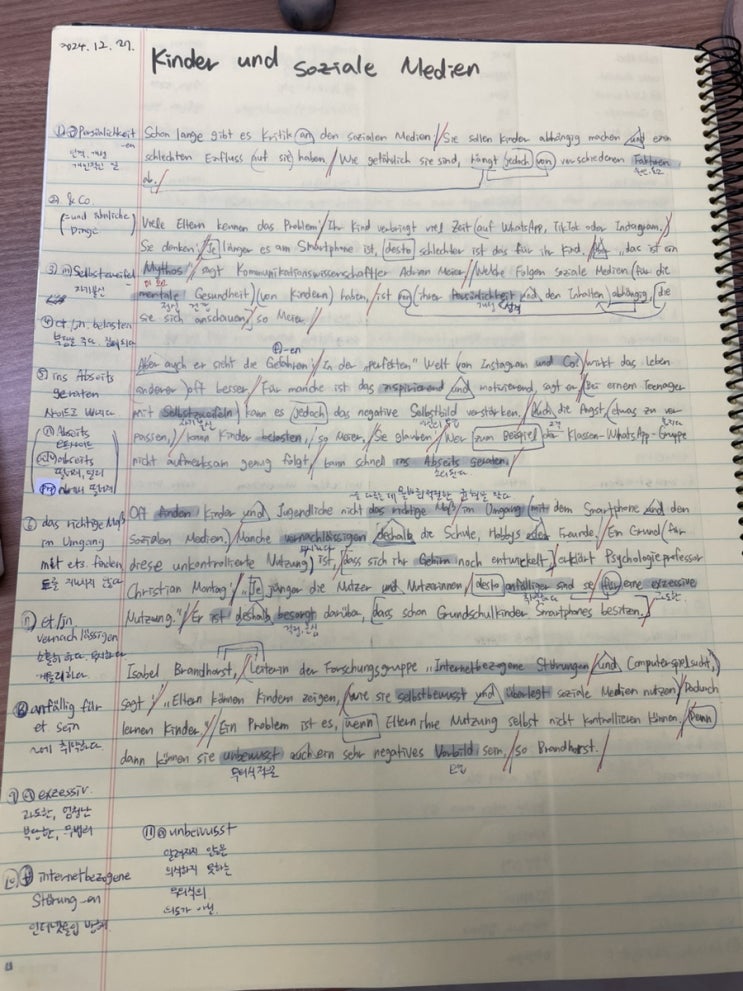 2024.12.27.
Kinder und soziale Medien
① Persönlichkeit -en
Schon lange gibt es Kritik an den sozialen Medien / Sie sollen Kinder abhängig machen und einen
schlechten Einfluss (auf sie) haben / Wie gefährlich sie sind, hängt jedoch von verschiedenen Faktoren
ab.
② & Co
(= und ähnliche
Dinge)
Viele Eltern kennen das Problem: / Ihr Kind verbringt viel Zeit (auf WhatsApp, TikTok oder Instagram.)
Sie denken: Je länger es am Smartphone ist, desto schlechter ist das für ihr Kind. „das ist ein
Mythos" sagt Kommunikationswissenschaftler Adrian Meier / Welche Folgen soziale Medien (für die
mentale Gesundheit) (von Kindern) haben, / ist von (ihrer Persönlichkeit und den Inhalten) abhängig, die
정신 건강
sie sich anschauen, / so Meier.
③ Selbstzweifel
자기불신
④ et/jn. belasten
부담을 주다.
⑤ ins Abseits
geraten
-en
Aber auch er sieht die Gefahren: / In der „perfekten" Welt (von Instagram und Co.) wirkt das Leben
anderer oft besser / Für manche ist das inspirierend und motivierend, sagt er / Bei einem Teenager
mit Selbstzweifeln / kann es jedoch das negative Selbstbild verstärken. / Auch die Angst, (etwas zu ver-
자기불신
passen,) / kann Kinder belasten, / so Meier / Sie glauben: / Wer zum Beispiel der Klassen-WhatsApp-Gruppe
nicht aufmerksam genug folgt, / kann schnell ins Abseits geraten.
Abseits
오프사이드
abseits
⑥ das richtige Maß
im Umgang
mit etw. finden
Oft finden Kinder und Jugendliche nicht das richtige Maß im Umgang (mit dem Smartphone und den
sozialen Medien.) / Manche vernachlässigen deshalb die Schule, Hobbys oder Freunde. / Ein Grund (für
diese unkontrollierte Nutzung) ist, / dass sich ihr Gehirn noch entwickelt, / erklärt Psychologieprofessor
Christian Montag: / „Je jünger die Nutzer und Nutzerinnen, / desto anfälliger sind sie für eine exzessive
취약한
과도한.
Nutzung." / Er ist deshalb besorgt darüber, / dass schon Grundschulkinder Smartphones besitzen.
et/jn
vernachlässigen
소홀히 하다.
게을리하다.
Isabel Brandhorst, / Leiterin der Forschungsgruppe „Internetbezogene Störungen und Computerspielsucht,"
sagt: / „Eltern können Kindern zeigen, / wie sie selbstbewusst und überlegt soziale Medien nutzen / Dadurch
lernen Kinder." / Ein Problem ist es, wenn Eltern ihre Nutzung selbst nicht kontrollieren können. / Denn
dann können sie unbewusst auch ein sehr negatives Vorbild sein, / so Brandhorst.
무의식적으로
anfällig für
et sein
~에 취약하다
exzessiv.
과도한, 엄청난
internetbezogene
Störung -en
⑪ unbewusst
알려지지 않은
의식하지 못하는
무의식의